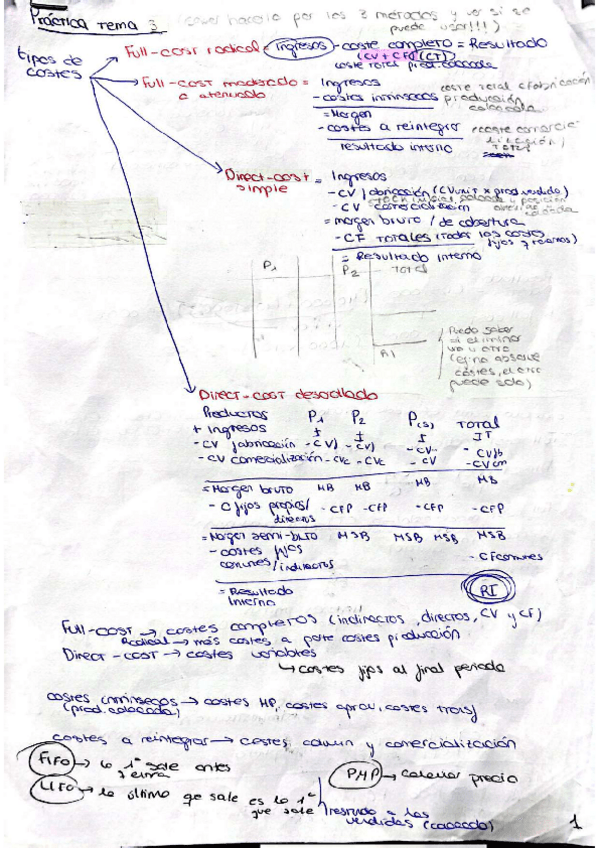 Práctica Tema 3 (saber hacerlo por los 3 métodos y ver si se
puede usar!!!)
tipos de
costes
Full-cost radical = Ingresos - coste completo = Resultado
(CV + CF) (CT)
coste total prod. colocada
Full-cost moderado = Ingresos
o atenuado
- costes intrínsecos producción
colocada
= Margen
- costes a reintegrar
resultado interno
Direct-cost = Ingresos
simple
- CV fabricación (CVunit x prod vendido)
- CV comercialización
= margen bruto / de cobertura
- CF TOTALES (Todos los costes
fijos
= Resultado interno
P1 P2 TOTAL
RI
Puedo saber
si eliminar
uno u otro
puede solo)
Direct-cost desarollado
Productos P1 P2 P(s) TOTAL
+ Ingresos I I I IT
- CV fabricación -CVf -CVf -CV - CVfb
- CV comercialización -CVc -CVc -CV -CVcm
= Margen bruto MB MB MB MB
- C fijos propios/ -CFP -CFP -CFP -CFP
directos
= Margen semi-bruto MSB MSB MSB MSB
- costes fijos
comunes/indirectos -CFcomunes
= Resultado RI
Interno
Full-cost → costes completos (indirectos, directos, CV y CF)
radical → más costes, a parte costes producción
Direct-cost → costes variables
↳ costes fijos al final periodo
costes intrínsecos → costes MP, costes aprov, costes transf
(prod. colocada)
costes a reintegrar → costes admin y comercialización
FIFO → lo 1º sale antes
PMP → calcular precio
LIFO → lo último que sale es lo 1º
que sale
vendidas
1